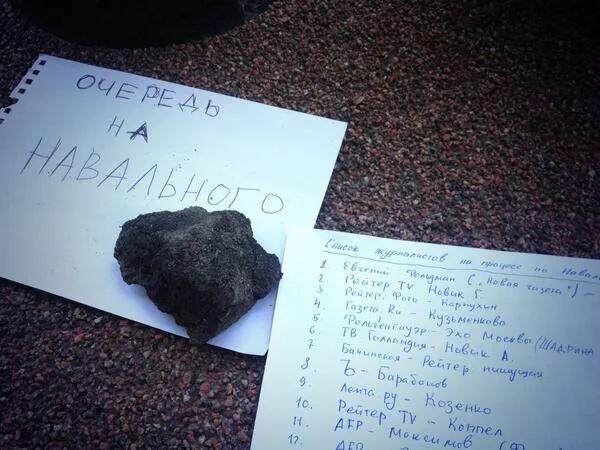 ОЧЕРЕДЬ
НА
НАВАЛЬНОГО
Список журналистов на процесс по Наваль
1 Евгений Фельдман ("Новая газета") –
2 Рейтер TV Новик Г.
3 Рейтер. Фото - Карпухин
4. Газета.Ru - Кузьменкова
5 Фельгенгауэр - Эхо Москвы (ШАДРИНА
6. ТВ Голландия - Новик А.
7 Бачинская - Рейтер пишущая
8. Ъ - Барабанов
9. Лента ру - Козенко
10. Рейтер TV - Коппел
11. AFP - Максимов
12. AFP